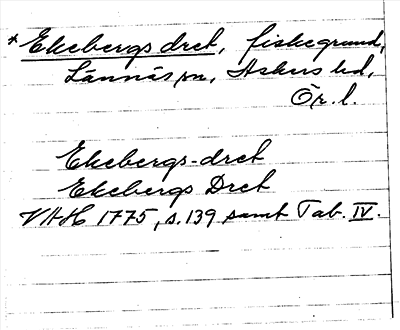 *Ekebergs dret, fiskegrund,
Lännäs sn, Askers hd,
Ör. l.
Ekebergs-dret
Ekebergs Dret
VAH 1775, s. 139 samt Tab. IV.